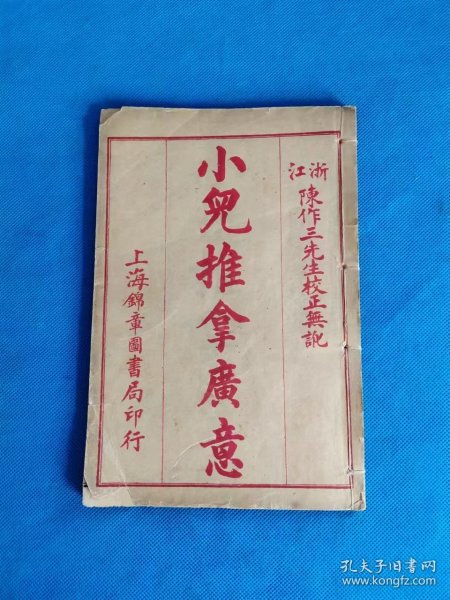 浙江
陳作三先生校正無訛
小兒推拿廣意
上海錦章圖書局印行
孔夫子旧书网
www.kongfz.com